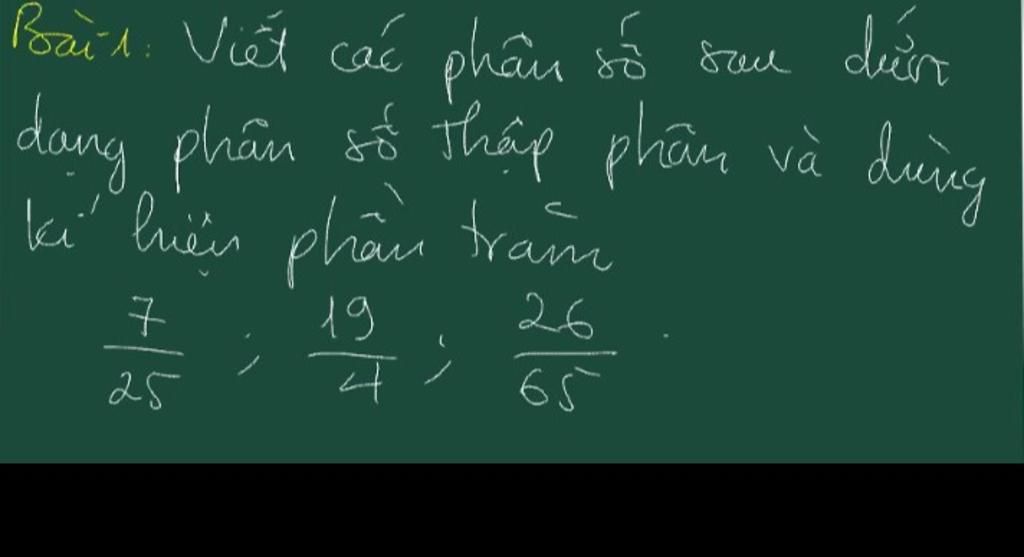 Bài 1: Viết các phân số sau dưới
dạng phân số thập phân và dùng
kí hiệu phần trăm
7/25 ; 19/4 ; 26/65 .